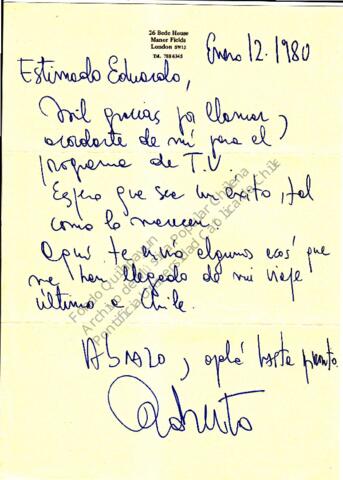 26 Bede House
Manor Fields
London SW15
Tel. 788 6345
Enero 12. 1980
Estimado Eduardo,
Mil gracias por llamar y
acordarte de mí para el
programa de T.V.
Espero que sea un éxito, tal
como lo merecen.
Aquí te envío algunas cosas que
me han llegado de mi viaje
último a Chile.
Abrazo, y ojalá hasta pronto.
Roberto
Fondo Quilapayún
Archivo de Música Popular Chilena
Pontificia Universidad Católica de Chile